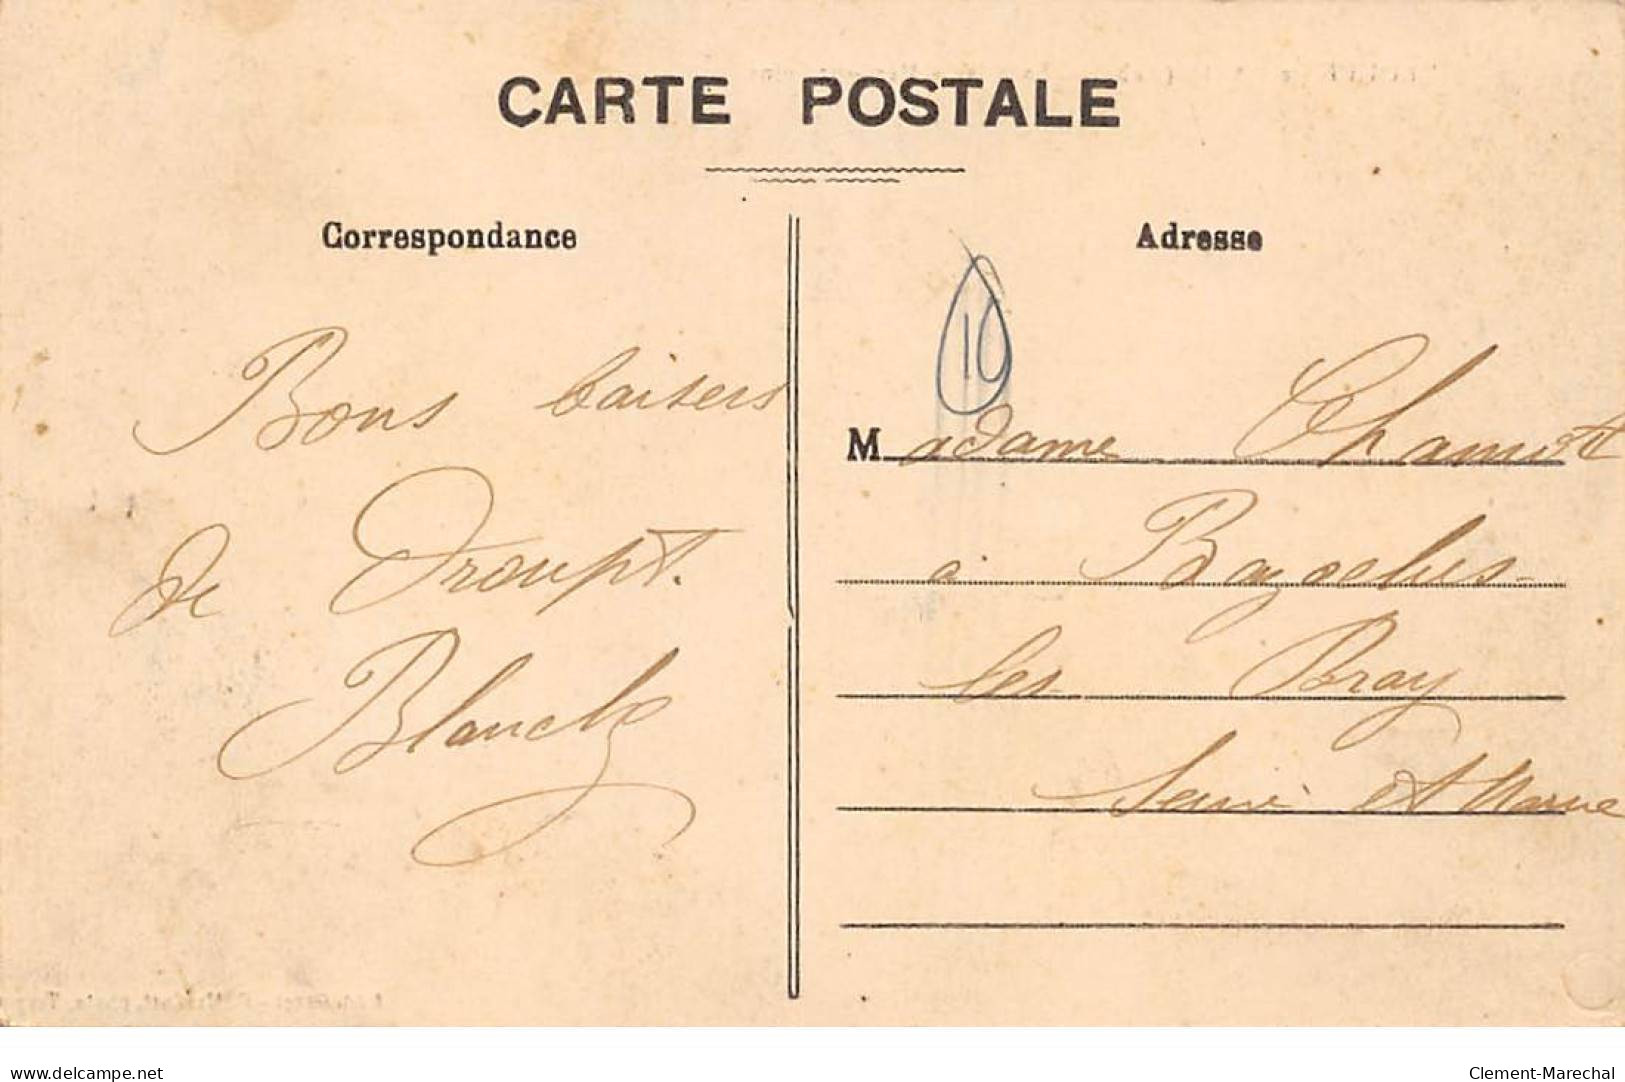 CARTE POSTALE
Correspondance
Adresse
10
Bons baisers
de Droupt.
Blanche
Madame Chamott
à Bazoches-
les Bray
Seine et Marne
www.delcampe.net
Clement-Marechal